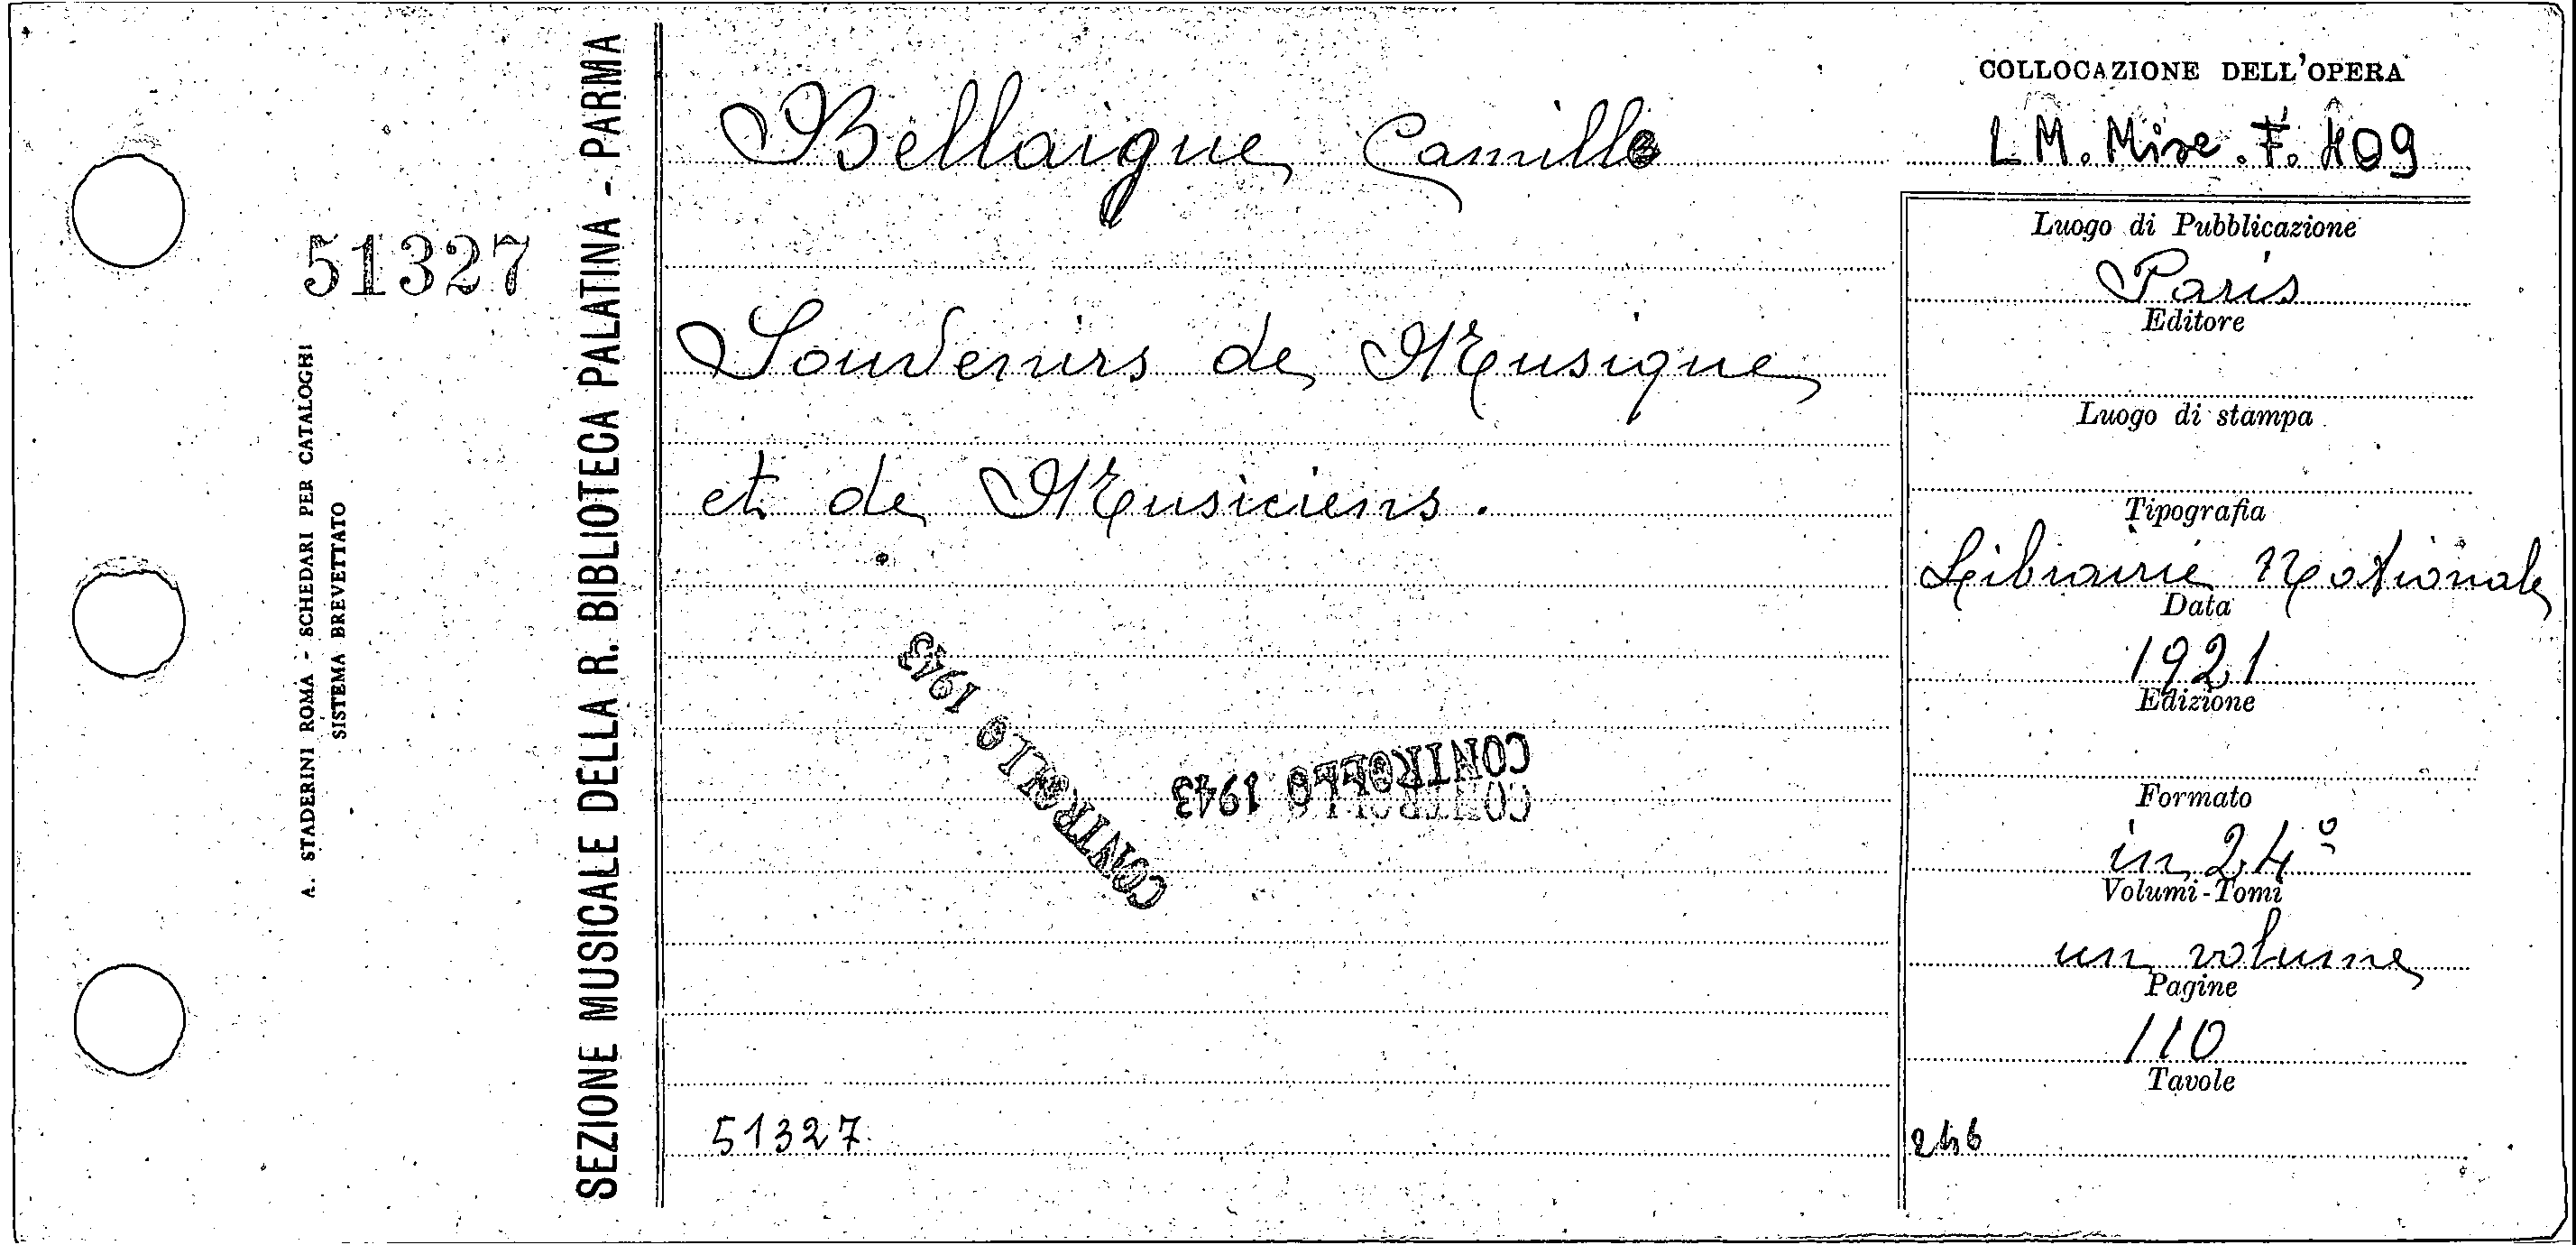 51327
A. STADERINI ROMA - SCHEDARI PER CATALOGHI
SISTEMA BREVETTATO
SEZIONE MUSICALE DELLA R. BIBLIOTECA PALATINA - PARMA
Bellaigue Camille
Souvenirs de Musique
et de Musiciens.
CONTROLLO 1943
CONTROLLO 1943
CONTROLLO
51327
COLLOCAZIONE DELL'OPERA
L M. Misc. F. 109
Luogo di Pubblicazione
Paris
Editore
Luogo di stampa
Tipografia
Librairie Nationale
Data
1921
Edizione
Formato
in 24º
Volumi-Tomi
un volume
Pagine
110
Tavole
246